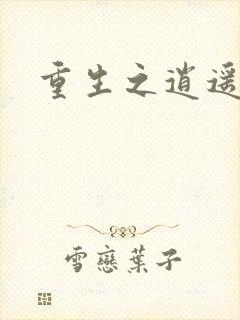 重生之逍遥
雪戀葉子